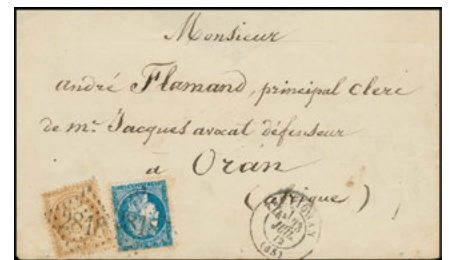 Monsieur
André Flamand, principal clerc
de Mr. Jacques avocat défenseur
a Oran
(Afrique)
2818
818
JUIL
(68)